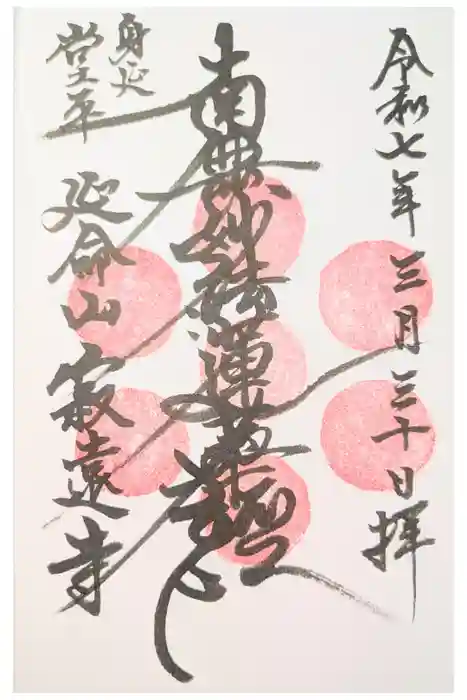 令和七年三月三十日拝
南無妙法蓮華經
身延
堂平
延命山寂遠寺